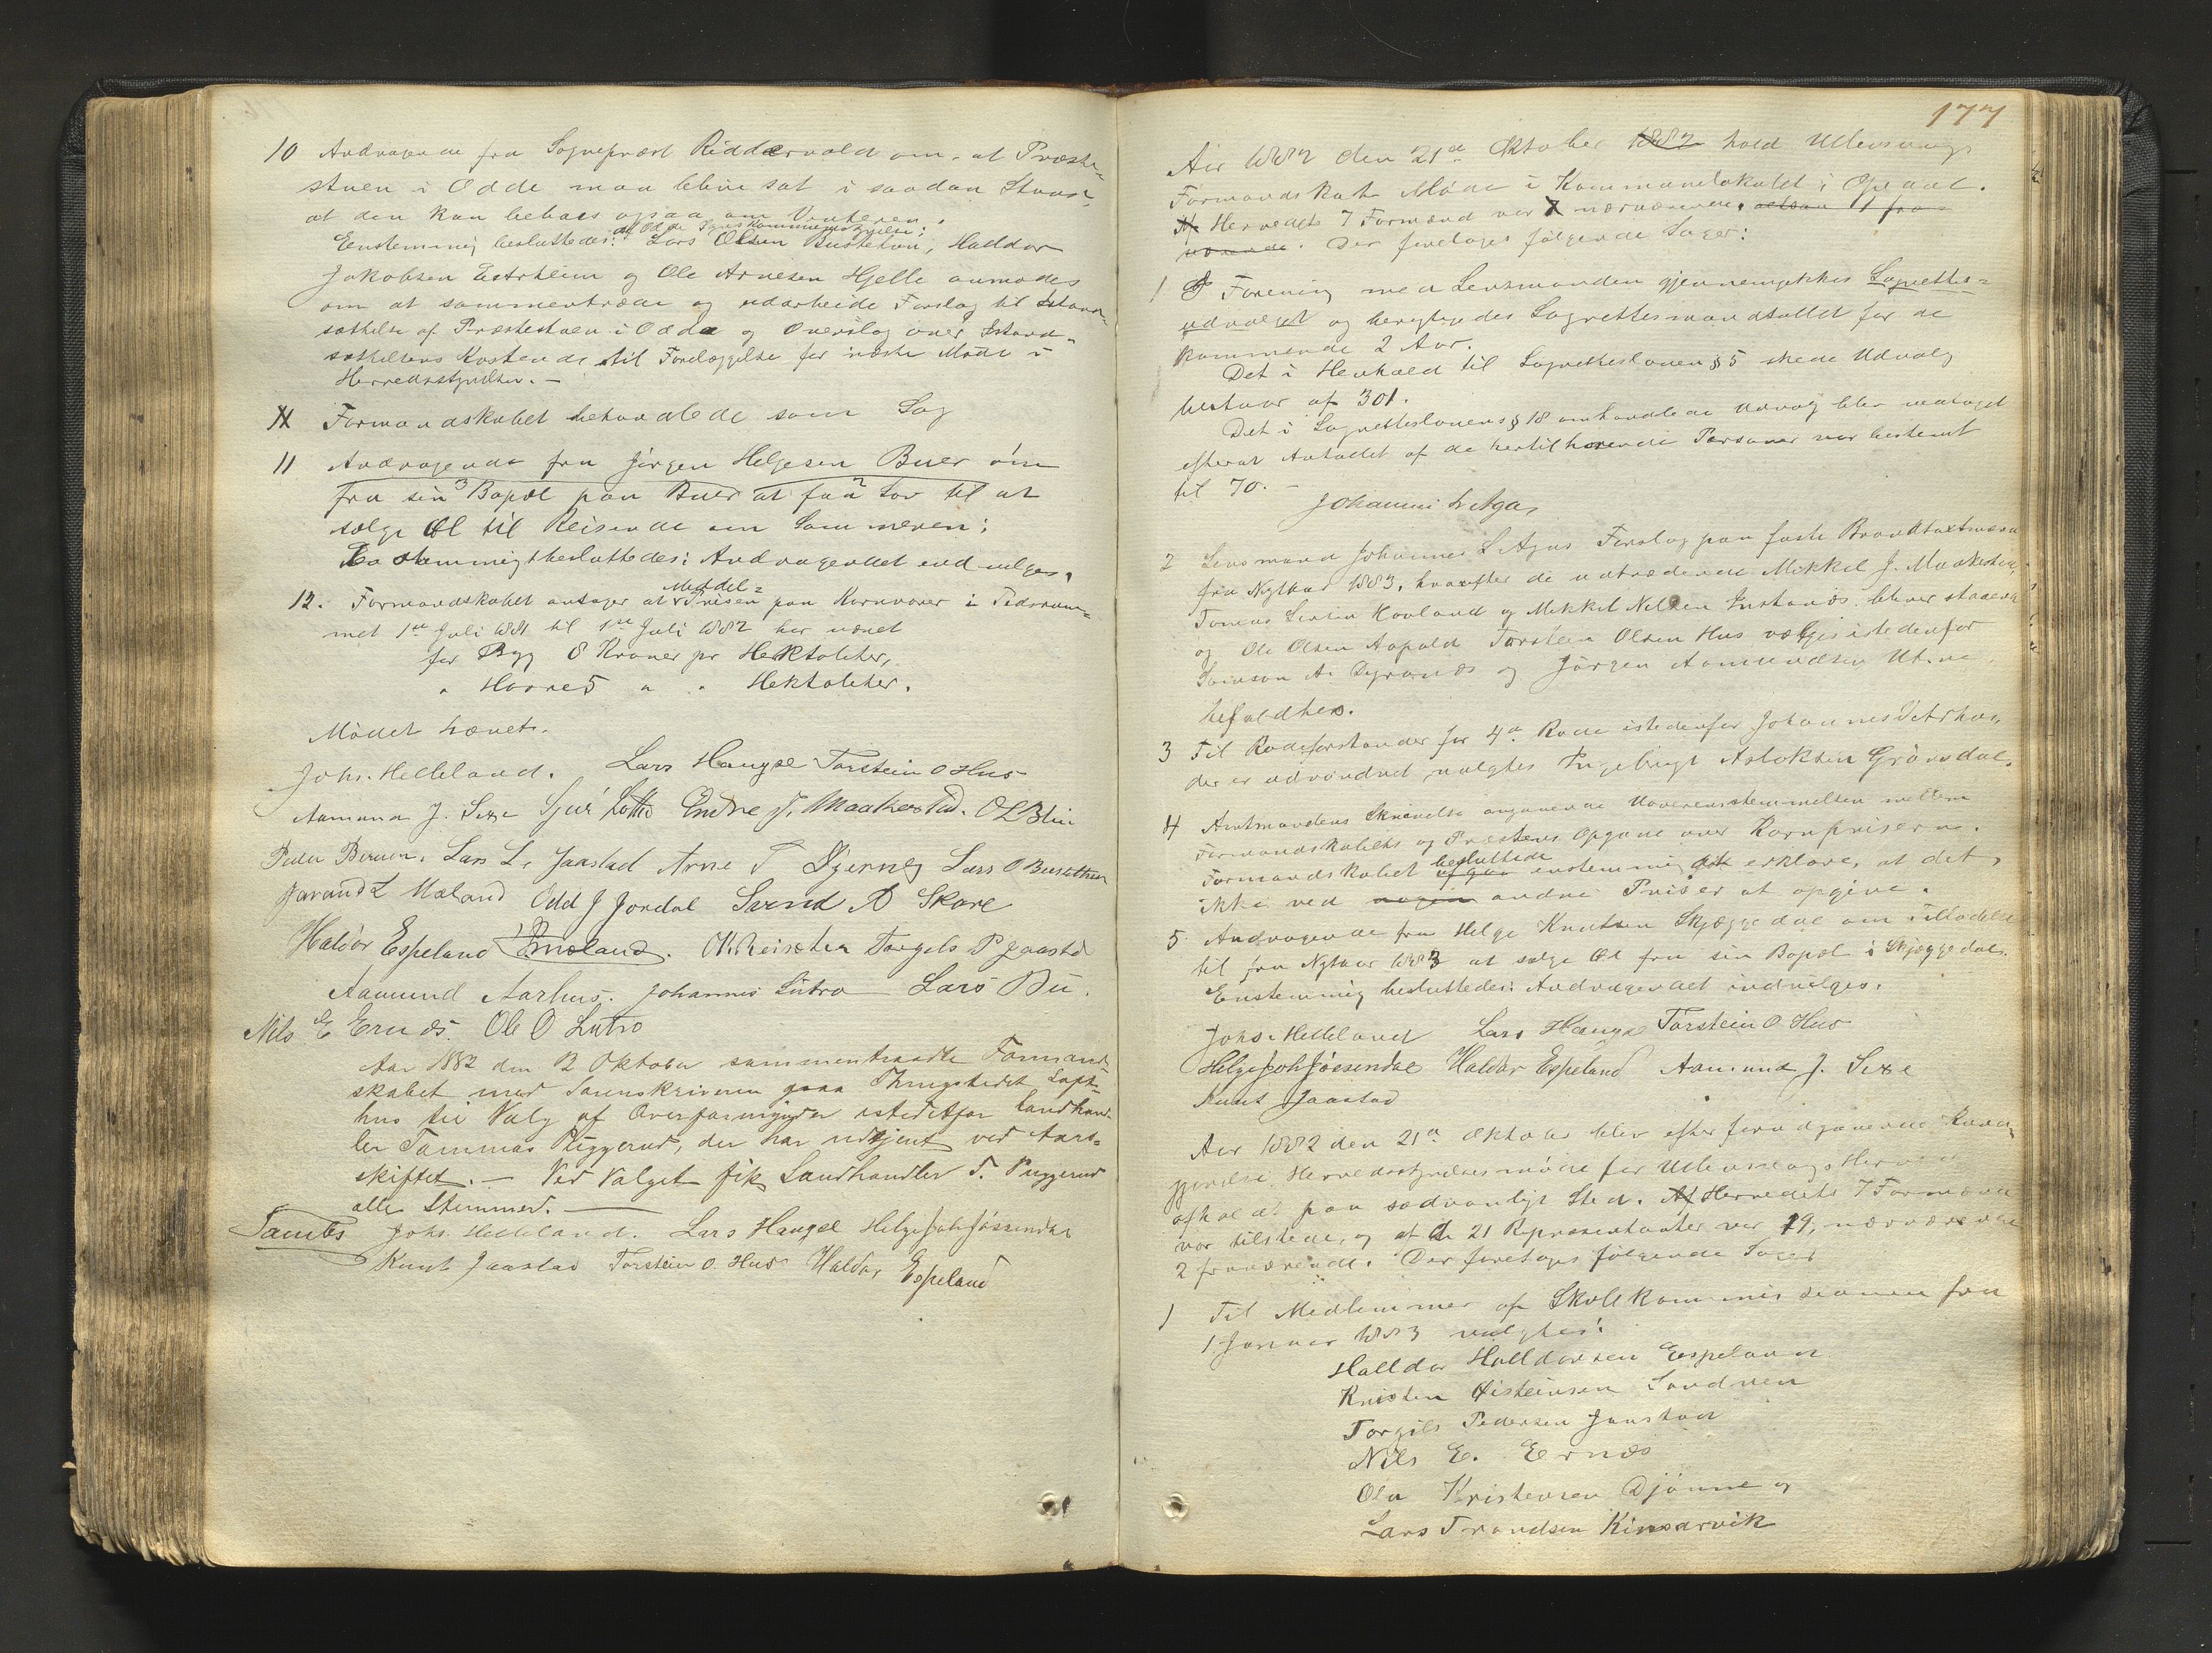 10 Andragende fra Sogneprest Riddervold om, at Præste-
stuen i Odde maa blive sat i saadan Stand
at den kan beboes ogsaa om Vinteren.
af Odde Sognskommunestyrelse;
Enstemmig besluttedes: Lars Olsen Bustetun, Haldor
Jakobsen Eitrheim og Ole Arnesen Hjelle anmodes
om at sammentræde og udarbeide Forslag til Istand-
sættelse af Præstestuen i Odde og Overslag over Istand-
sættelsens Kostende til Forelæggelse for næste Møde i
Herredsstyrelsen. –
Formandskabet behandlede som Sag
11 Andragende fra Jørgen Helgesen Buer om
fra sin Bopæl paa Buer at faa Lov til at
sælge Øl til Reisende om Sommeren;
Enstemmigt besluttedes: Andragendet indvilges.
Middel-
12. Formandskabet antager at Prisen paa Kornvarer i Tidsrum-
met 1ste Juli 1881 til 1ste Juli 1882 har været
for Byg 8 Kroner pr Hektoliter,
" Havre 5 " " Hektoliter.
Mødet hævet.
Johs. Helleland. Lars Haugse Torstein O Hus
Aamund J. Sexe Sjur Lothe Endre J. Maakestad. O L Blie
Peder Børven. Lars L. Jaastad Arne T Bjerney Lars O Bustethun
Javand L Mæland Odd J Jordal Svend A Skare
Haldor Espeland Torgils P Jaastad
Aamund Aarhus. Johannes Lutro Lars Bu.
Nils E Ernæs. Ole O Lutro
Aar 1882 den 12 Oktober sammentraadte Formand-
skabet med Sorenskriveren paa Thingstedet Loft-
hus til Valg af Overformynder istedetfor Landhand-
ler Tommas Puggerud, der har udtjent ved Aars-
skiftet. – Ved Valget fik Landhandler T. Puggerud
alle Stemmer. —
Tambs Johs. Helleland. Lars Haugse Helge Joh Jøssendal
Knut Jaastad Torstein O. Hus Haldor Espeland
177
Aar 1882 den 21de Oktober 1882 hold Ullensvangs
Formandskab Møde i Kommunelokalet i Opedal.
Af Herredets 7 Formænd var 7 nærværende, altsaa 1 fra-
værende. Der foretoges følgende Sager:
1 I Forening med Lensmanden gjennemgikkes Lagrettes-
udvalget og berigtigedes Lagrettesmandstallet for de
kommende 2 Aar.
Det i Henhold til Lagretteslovens § 5 skede Udvalg
bestaar af 301.
Det i Lagretteslovens § 18 omhandlede Udvalg blev vedtaget
efterat Antallet af de hertil hørende Personer var bestemt
til 70. –
Johannes L Aga,
2 Lensmand Johannes L Agas Forslag paa faste Brandtaxtmænd
fra Nytaar 1883, hvorefter de udtrædende Mikkel J. Maakestad,
Tomas Larsen Hovland og Mikkel Nilsen Instanæs bliver staaende
og Ole Olsen Aapald Torstein Olsen Hus vælges istedenfor
Samson A. Digranæs og Jørgen Aamundsen Utne
bifaldtes.
3 Til Rodeforstander for 4de Rode istedenfor Johannes V Aarhus,
der er udvandret valgtes Ingebrigt Aslaksen Grønsdal.
4 Amtmandens Skrivelse angaaende Uoverensstemmelsen mellem
Formandskabets og Præstens Opgave over Kornpriserne.
besluttede
Formandskabet afgav enstemmig at erklære, at det
ikke ved nogen andre Priser at opgive.
5 Andragende fra Helge Knutsen Skjæggedal om Tilladelse
til fra Nytaar 1883 at sælge Øl fra sin Bopæl i Skjæggedal.
Enstemmig besluttedes: Andragendet indvilges.
Johs. Helleland Lars Haugse Torstein O. Hus
Helge Joh Jøssendal Haldor Espeland Aamund J. Sexe
Knut Jaastad
Aar 1882 den 21de Oktober blev efter forudgaaende Kund-
gjørelse Herredsstyrelsesmøde for Ullensvangs Herred
afholdt paa sædvanligt Sted. Af Herredets 7 Formænd
var tilstede, og af de 21 Repræsentanter var 19, nærværende
2 fraværende. Der foretoges følgende Sager
1 Til Medlemmer af Skolekommissionen fra
1 Januar 1883 valgtes:
Halldor Halldorsen Espeland
Kristen Øisteinsen Sandven
Torgils Pedersen Jaastad
Nils E. Ernæs
Ola Kristensen Djønne og
Lars Trondsen Kinsarvik